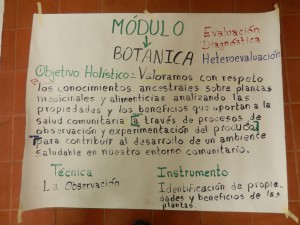 MÓDULO
Evaluación
Diagnóstica
BOTANICA
Heteroevaluación
Objetivo Holístico = Valoramos con respeto
los conocimientos ancestrales sobre plantas
medicinales y alimenticias analizando las
propiedades y los beneficios que aportan a la
salud comunitaria a través de procesos de
observación y experimentación del producto
Para contribuir al desarrollo de un ambiente
saludable en nuestro entorno comunitario.
Técnica
Instrumento
La Observación
Identificación de propie-
dades y beneficios de las
plantas.